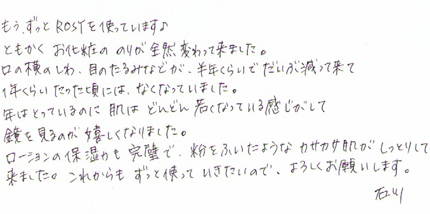 もう、ずっとROSYを使っています♪
ともかくお化粧ののりが全然変わって来ました。
口の横のしわ、目のたるみなどが、半年くらいでだいぶ減って来て
1年くらいたった頃には、なくなっていました。
年はとっているのに肌はどんどん若くなっている感じがして
鏡を見るのが嬉しくなりました。
ローションの保湿力も完璧で、粉をふいたようなカサカサ肌がしっとりして
来ました。これからもずっと使っていきたいので、よろしくお願いします。
石川